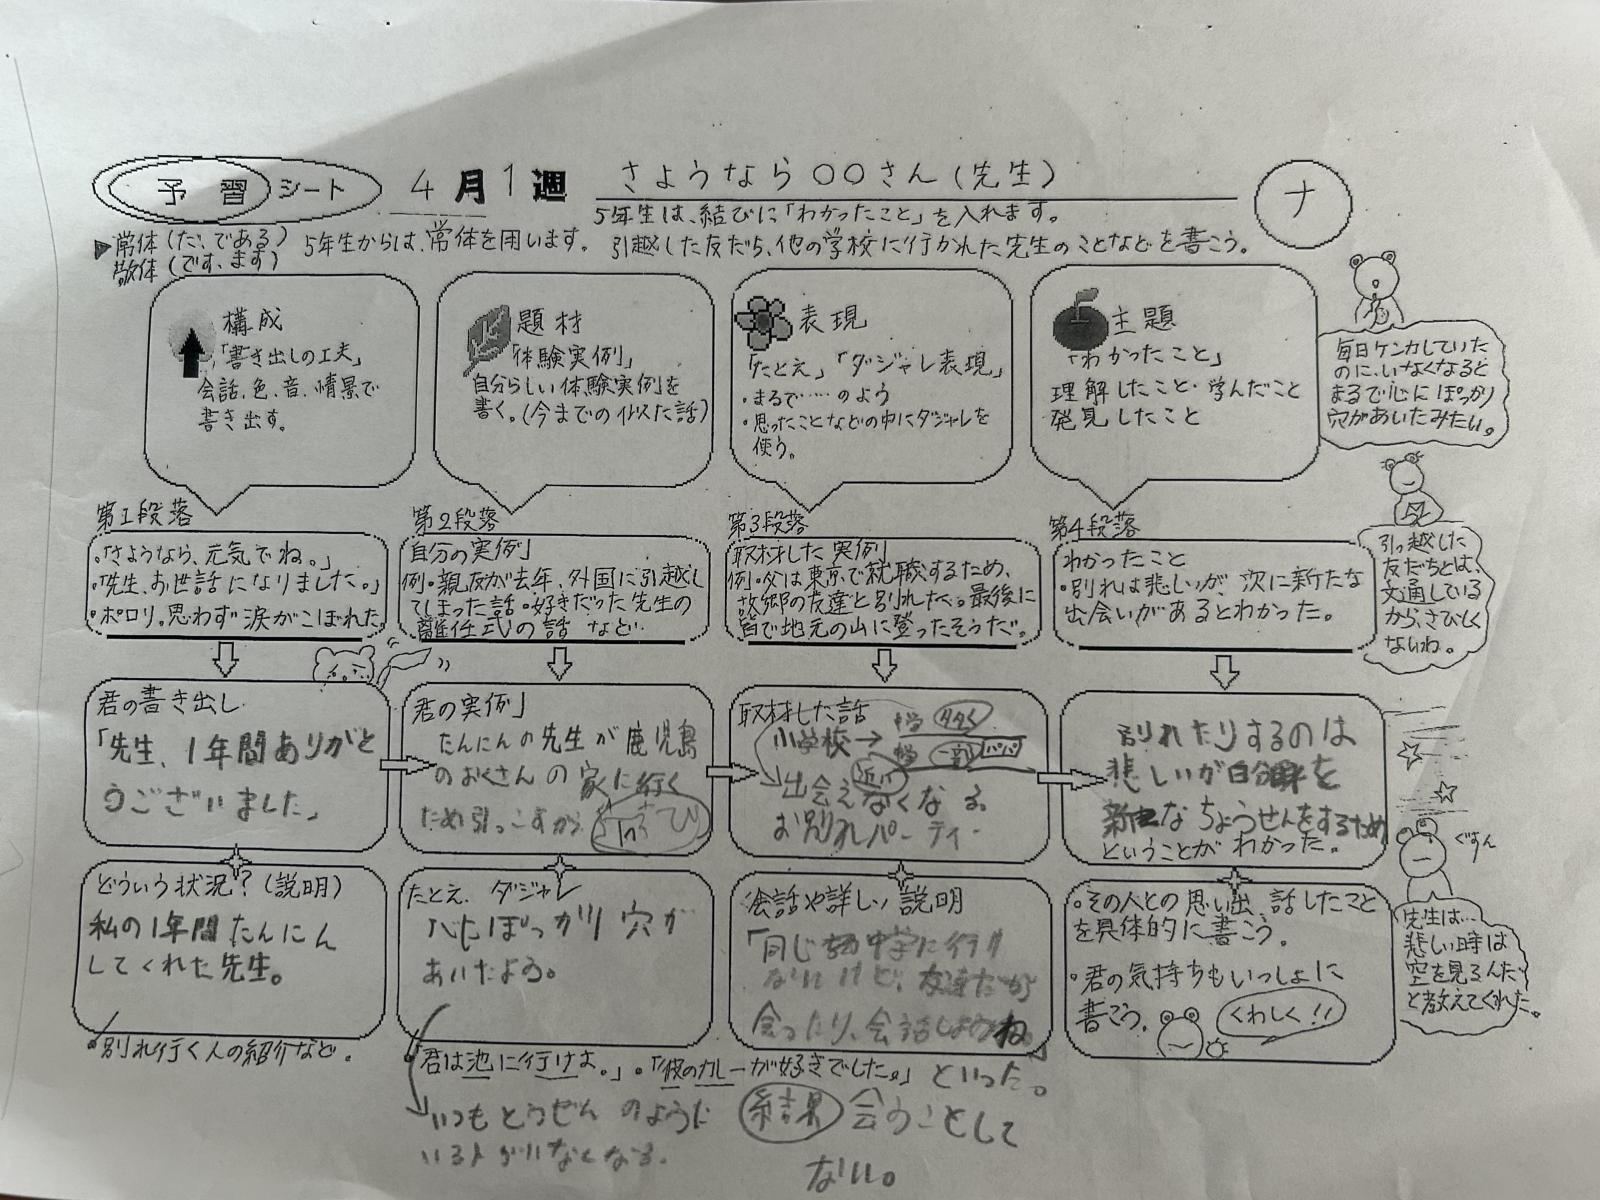 予習シート 4月1週 さようなら〇〇さん(先生)
ナ
5年生は、結びに「わかったこと」を入れます。
▶常体(だ、である) 5年生からは、常体を用います。 引越した友だち、他の学校に行かれた先生のことなどを書こう。
敬体(です、ます)
構成
「書き出しの工夫」
会話、色、音、情景で
書き出す。
題材
「体験実例」
自分らしい体験実例を
書く。(今までの似た話)
表現
「たとえ」「ダジャレ表現」
・まるで……のよう
・思ったことなどの中にダジャレを
使う。
主題
「わかったこと」
理解したこと・学んだこと
発見したこと
毎日ケンカしていた
のに、いなくなると
まるで心にぽっかり
穴があいたみたい。
第1段落
・「さようなら、元気でね。」
・「先生、お世話になりました。」
・ポロリ。思わず涙がこぼれた
第2段落
自分の実例」
例・親友が去年、外国に引越し
てしまった話・好きだった先生の
離任式の話 など
第3段落
取材した実例」
例・父は東京で就職するため、
故郷の友達と別れた。最後に
皆で地元の山に登ったそうだ。
第4段落
わかったこと
・別れは悲しいが、次に新たな
出会いがあるとわかった。
引っ越した
友だちとは、
文通している
から、さびしく
ないわ。
君の書き出し
「先生、1年間ありがと
うございました」
君の実例」
たんにんの先生が鹿児島
のおくさんの家に行く
ため引っこすから
取材した話
小学校→
出会えなくなる
お別れパーティー
別れたりするのは
悲しいが自分を
新たなちょうせんをするため
ということがわかった。
ぐすん
どういう状況?(説明)
私の1年間たんにん
してくれた先生。
・別れ行く人の紹介など。
たとえ、ダジャレ
ぽっかり穴が
あいたよう。
「君は池に行けよ。」・「彼のカレーが好きでした。」
いつもとうぜんのように
いる人がいなくなる。
会話や詳しい説明
「同じ中学に行け
ないけど、友達だから
会ったり、会話しようね。」
といった。
結果 会うことして
ない。
・その人との思い出、話したこと
を具体的に書こう。
・君の気持ちもいっしょに
書こう。
くわしく!!
先生は…
悲しい時は
空を見るんだ
と教えてくれた。